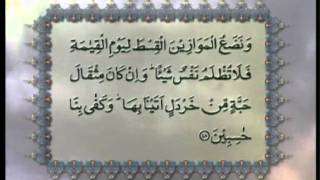 وَ نَضَعُ الْمَوَازِيْنَ الْقِسْطَ لِيَوْمِ الْقِيٰمَةِ
فَلَا تُظْلَمُ نَفْسٌ شَيْـًٔا ؕ وَ اِنْ كَانَ مِثْقَالَ
حَبَّةٍ مِّنْ خَرْدَلٍ اَتَيْنَا بِهَا ؕ وَ كَفٰى بِنَا
حٰسِبِيْنَ ﴿۴۸﴾